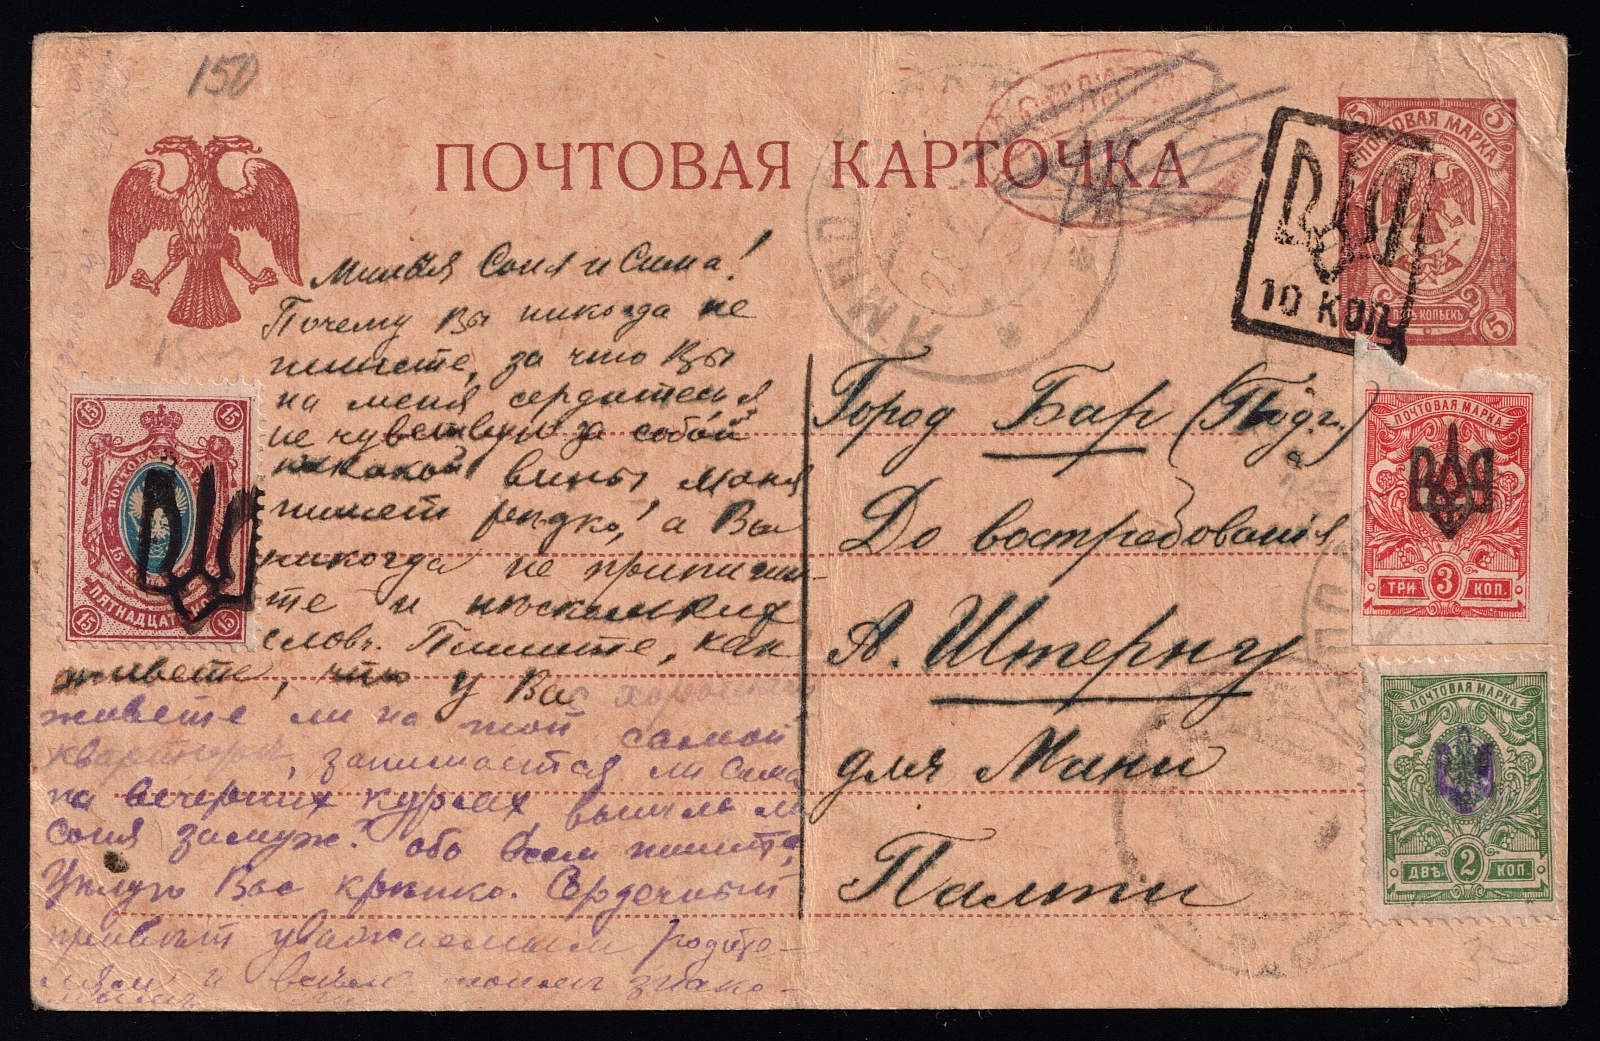 150
ПОЧТОВАЯ КАРТОЧКА
ПОЧТОВАЯ МАРКА
5 5
ПЯТЬ КОПѢЕКЪ
5
10 КОП.
Милыя Соня и Сима!
Почему Вы никогда не
пишете, за что Вы
на меня сердитесь, я
не чувствую за собой
никакой вины. Маня
пишет рѣдко, а Вы
никогда не припиши-
те и нѣсколких
словъ. Пишите, как
живете, что у Вас
живете ли на той самой
квартирѣ, занимается ли Сима
на вечерних курсах, вышла ли
Соня замуж? обо всем пишите,
Цѣлую Вас крѣпко. Сердечный
привѣт уважаемым родите-
лям и всѣм моим знако-
Город Бар (Под.г.)
До востребованія
А. Штернѣ
для Мани
Палти
15 15
ПОЧТОВАЯ
15
ПЯТНАДЦАТЬ
15 15
ПОЧТОВАЯ МАРКА
ТРИ 3 КОП.
ПОЧТОВАЯ МАРКА
ДВѢ 2 КОП.